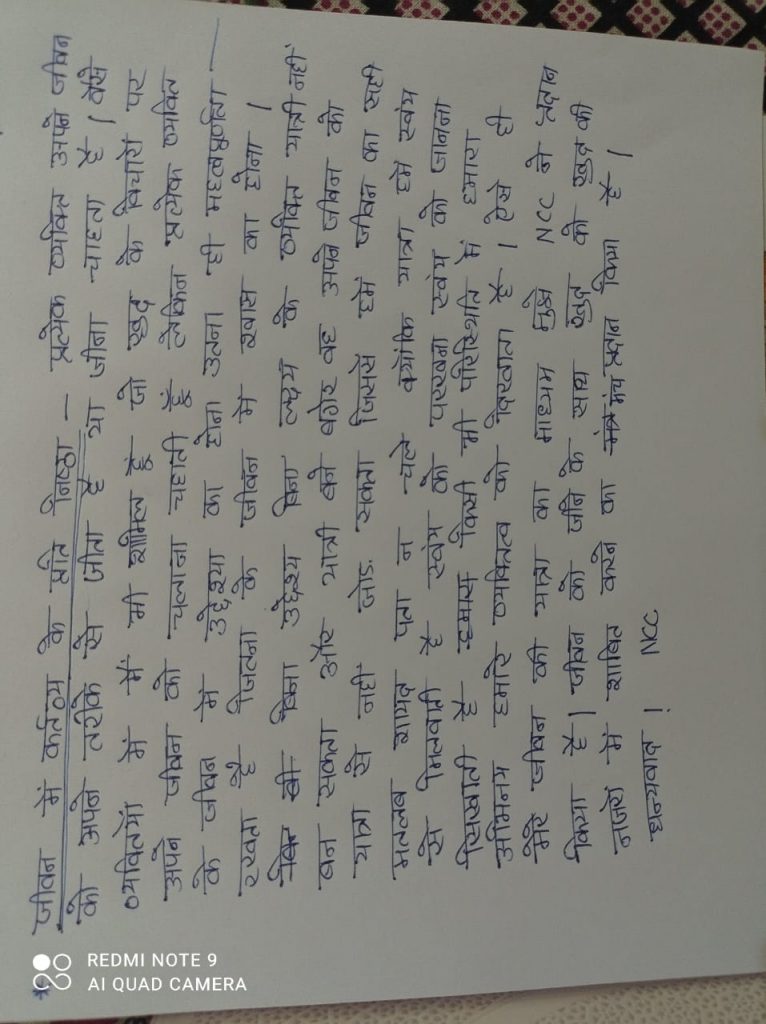 जीवन में कर्तव्य के प्रति निष्ठा — प्रत्येक व्यक्ति अपने जीवन
को अपने तरीके से जीता है या जीना चाहता है। वैसे
व्यक्तियों में मैं भी शामिल हूँ जो खुद के विचारों पर
अपने जीवन को चलाना चहाती हूँ लेकिन प्रत्येक व्यक्ति
के जीवन में उद्देश्या का होना उतना ही महत्वपूर्णता
रखता है जितना के जीवन में श्वास का होना।
बिना उद्देश्य बिना लक्ष्य के व्यक्ति यात्री नहीं
बन सकता और यात्री बने बगैर वह अपने जीवन को
यात्रा से नही जोड सकता जिससे हमें जीवन का सही
मतलब शायद पता न चले क्योंकि यात्रा हमें स्वंय
से मिलवाती है स्वंय को परखना स्वंय को जानना
सिखाती है हमारा किसी भी परिस्थिति में हमारा
अभिनय हमारे व्यक्तित्व को दिखाता है। ऐसे ही
मेरे जीवन की यात्रा का माध्यम मुझे NCC ने प्रदान
किया है। जीवन को जीने के साथ खुद को खुद की
नजरों में शाबित करने का मंच प्रदान किया है।
धन्यवाद! NCC
REDMI NOTE 9
AI QUAD CAMERA